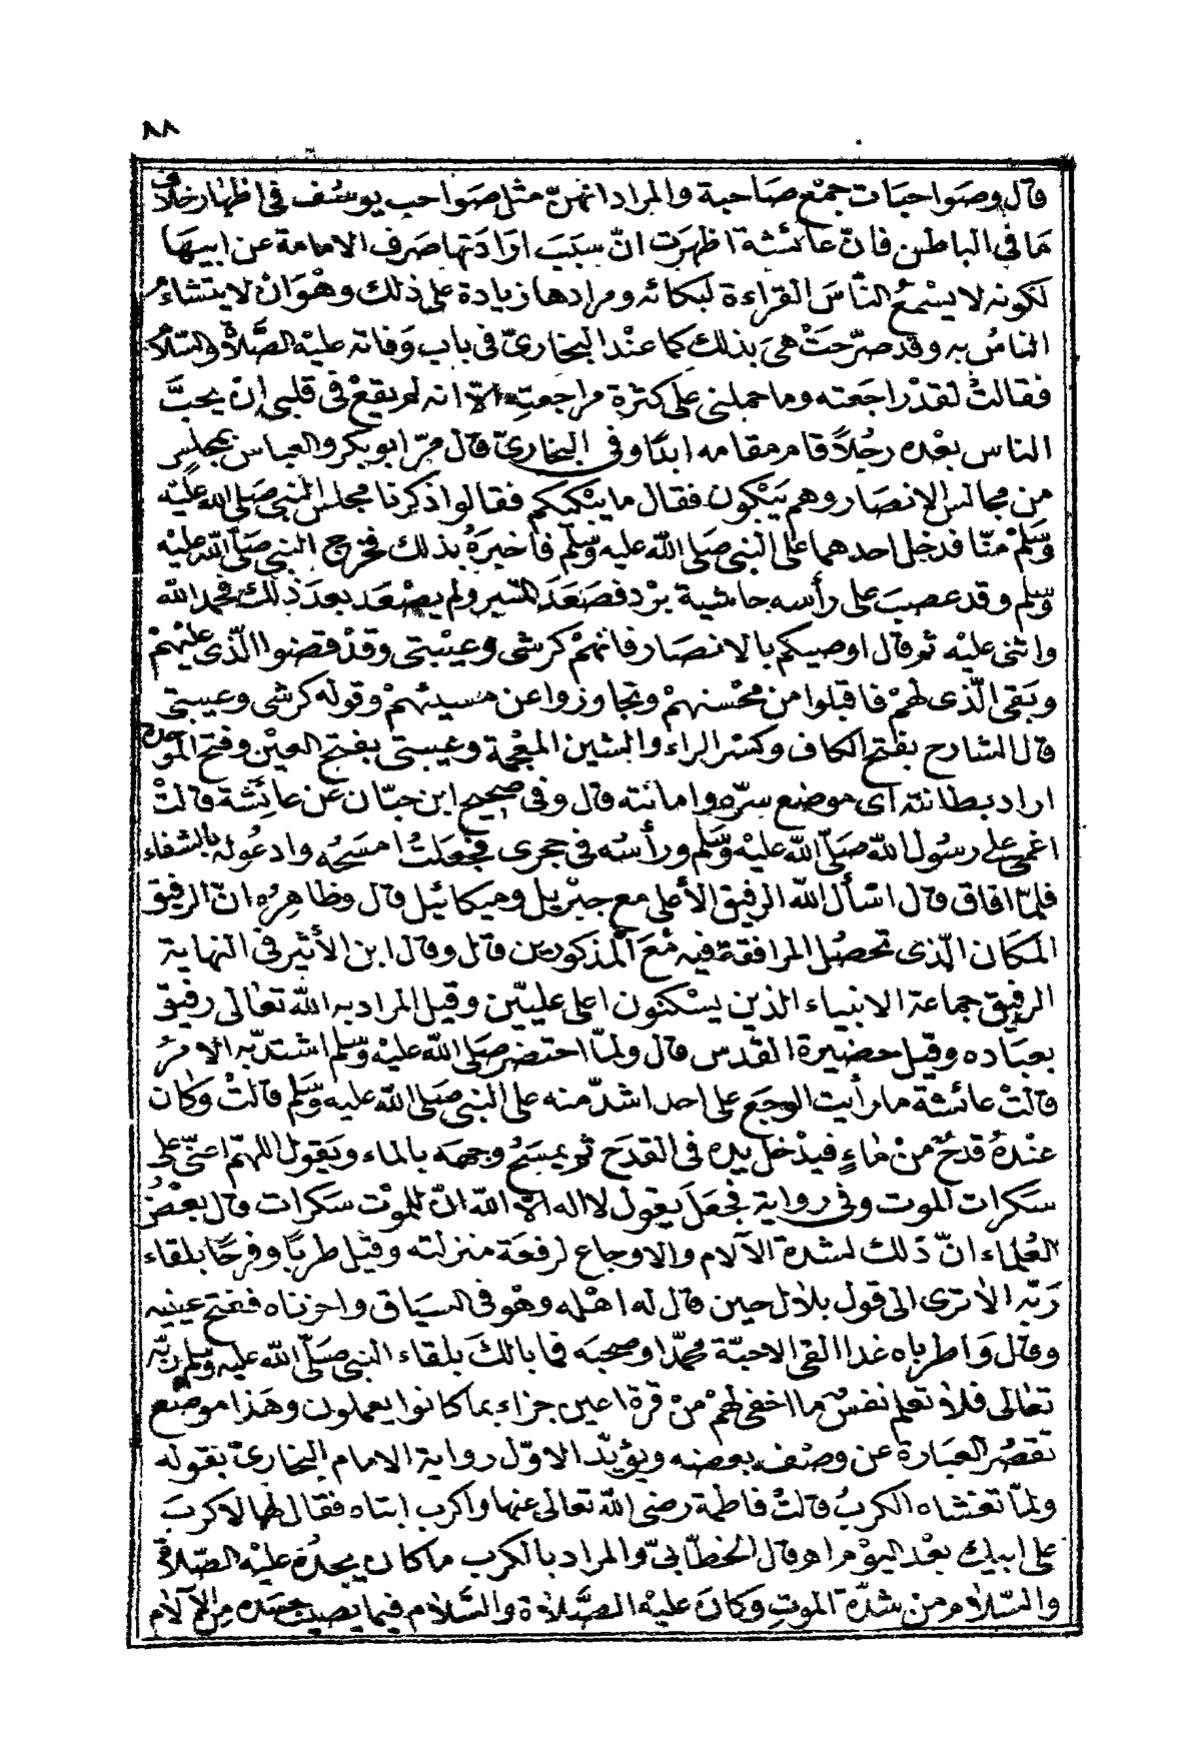 ٨٨
قال وصواحبات جمع صاحبة والمراد انهنّ مثل صواحب يوسُف فى اظهار خلاف
مَا فى الباطن فانّ عائشة اظهرَت انّ سبَبَ ارادَتها صَرف الامامة عن ابيهَا
لكونه لا يسْمعُ النّاسَ القراءة لبكائه ومرادها زيادة على ذلك وهْوَ انْ لا يتشاءمُ
الناسُ به وقد صرّحَتْ هىَ بذلك كما عنْد البخارىّ فى باب وَفاته عليْه الصَّلاةُ والسّلامُ
فقالتْ لقدْ راجَعته وما حملنى على كثرة مراجعتِه الاّ انه لم يقعْ فى قلبى انْ يحبَّ
الناس بعْده رجُلاً قام مقامه ابدًا وفى البخارىّ قال مرّ ابو بكر والعباس بمجلِسٍ
من مجالس الانصار وهم يَبْكون فقال ما يبْكيكم فقالوا ذكرنا مجلس النبى صَلى الله عليْه
وَسَلّمْ منّا فدخل احدهما على النبى صَلى الله عليه وَسَلّم فأخبرَهُ بذلك فخرج النبى صَلّى الله عليْه
وَسّلم وقد عصبَ على رأسه حاشية برْد فصَعَدَ المنبر ولم يصْعَد بعدَ ذلك فحمد الله
واثنى عليْه ثم قال اوصيكم بالانصار فانهمْ كرشى وعيْبتى وقدْ قضوا الّذى عليْهمْ
وبَقى الّذى لهمْ فاقبلوا من محْسنهمْ وتجاوزوا عن مسيئهمْ وقوله كرشى وعيبتى
قال الشارح بفتح الكاف وكسْر الراء والشين المعْجمة وعيبتى بفتح العيْن وفتح الموحدة
اراد بطانته اى موضع سرّه وامانته قال وفى صحيح ابن حبّان عن عائشَة قالتْ
اغمى على رسُول الله صَلّى الله عليْه وَسَلّم ورأسُه فى حجرى فجعَلتُ امسَحُه وادعُو له بالشفاء
فلمّا افاق قال اسْأل الله الرفيق الأعلى مع جبْريل وميكائيل قال وظاهِرهُ انّ الرفيق
المكان الّذى تحصُل المرافقة فيه مَعَ المذكورين قال وقال ابن الأثير فى النهاية
الرفيق جماعة الانبياء الذين يسْكنون اعلى عليّين وقيل المراد به الله تعَالى رفيق
بعبَاده وقيل حضيرة القدس قال ولمّا احتضر صَلى الله عليْه وَسلم اشتدّ به الامرُ
قالتْ عائشة ما رأيت الوجعَ على احد اشدّ منه على النبى صَلى الله عليه وَسَلّم قالتْ وكان
عنْدهُ قدحُ منْ مَاءٍ فيدْخل يده فى القدَح ثم يمسَحُ وجهه بالماء ويَقول اللهمّ اعنّى على
سكرات الموت وفى رواية فجعَلَ يقول لا اله الاّ الله انّ للموْت سَكرات قال بعْضُ
العُلماء انّ ذلك لشدة الآلام والاوجاع لرفعَة منزلته وقيْل طربًا وفرحًا بلقاء
رَبّه الا ترى الى قول بلال حين قال له اهْله وهْو فى السيَاق واحزناه ففتح عينيه
وقال وَاطرباه غدا القى الاحبّة محمّدا وصحبَه فما بالكَ بلقاء النبى صَلّى الله عليه وسلم ربّه
تعَالى فلا تعلم نفسٌ ما اخفى لهمْ منْ قرة اعين جزاء بما كانوا يعملون وهَذا موضع
تقصُر العبَارة عن وصْف بعضه ويؤيّد الاوّل رواية الامام البخارىّ بقوله
ولمّا تغشاه الكربُ قالتْ فاطمة رضى الله تعالى عنها واكرب ابتاه فقال لها لا كربَ
على ابيك بعْد اليوْم اهـ قال الخطّابىّ والمراد بالكرب ما كان يجدُه عليْه الصّلاة
والسّلام من شدّة الموتِ وكانَ عليْه الصَّلاة والسَّلام فيما يصيب جسَده مِن الآلام